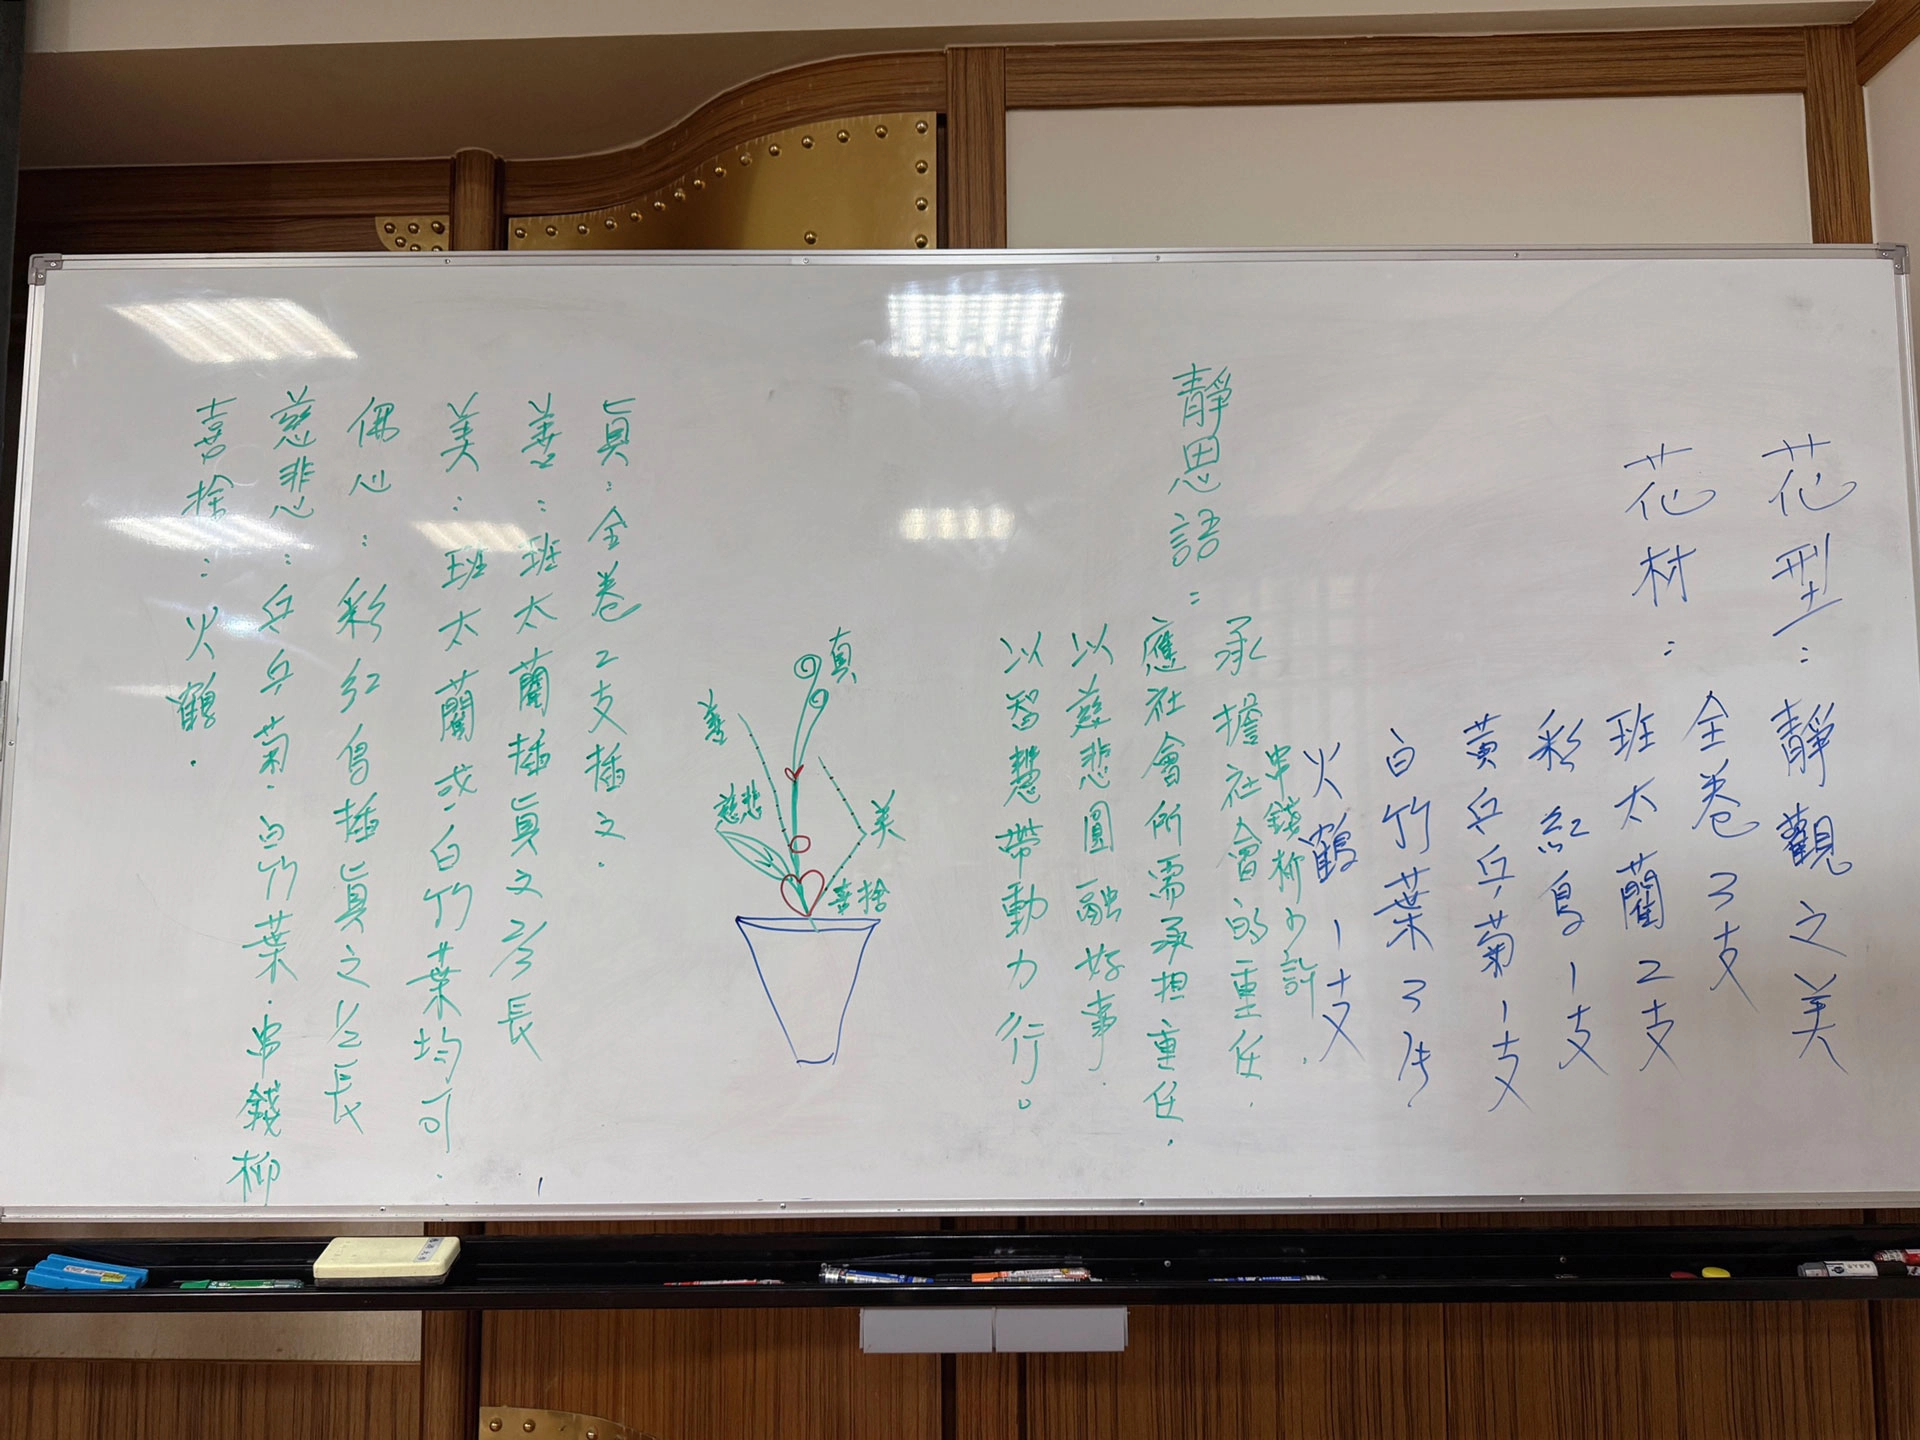 花型：靜觀之美
花材：
全卷3支
班太蘭2支
彩紅鳥1支
黃乒乓菊1支
白竹葉3片
火鶴1支
串錢柳少許.
靜思語：
承擔社會的重任.
應社會所需承担重任.
以慈悲圓融好事
以智慧帶動力行。
真
善
美
慈悲
喜捨
真：全卷2支插之.
善：班太蘭插真之2/3長
美：班太蘭或白竹葉均可.
佛心：彩紅鳥插真之1/2長
慈悲：乒乓菊.白竹葉.串錢柳
喜捨：火鶴.